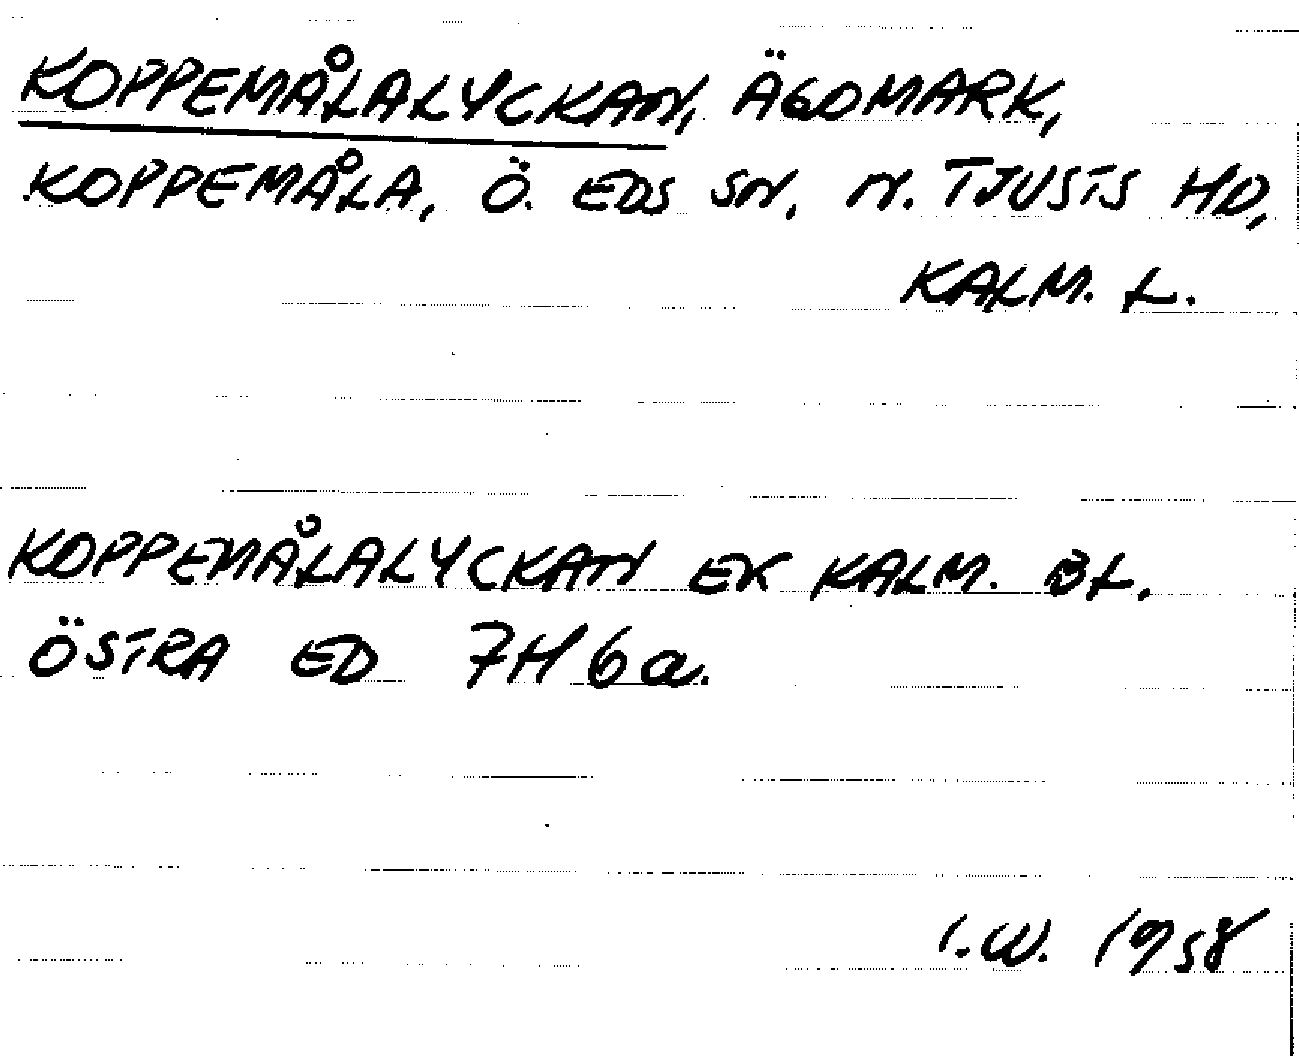 KOPPEMÅLALYCKAN, ÄGOMARK,
KOPPEMÅLA, Ö. EDS SN, N. TJUSTS HD,
KALM. L.
KOPPEMÅLALYCKAN EK KALM. BL.
ÖSTRA ED 7H6a.
I.W. 1958